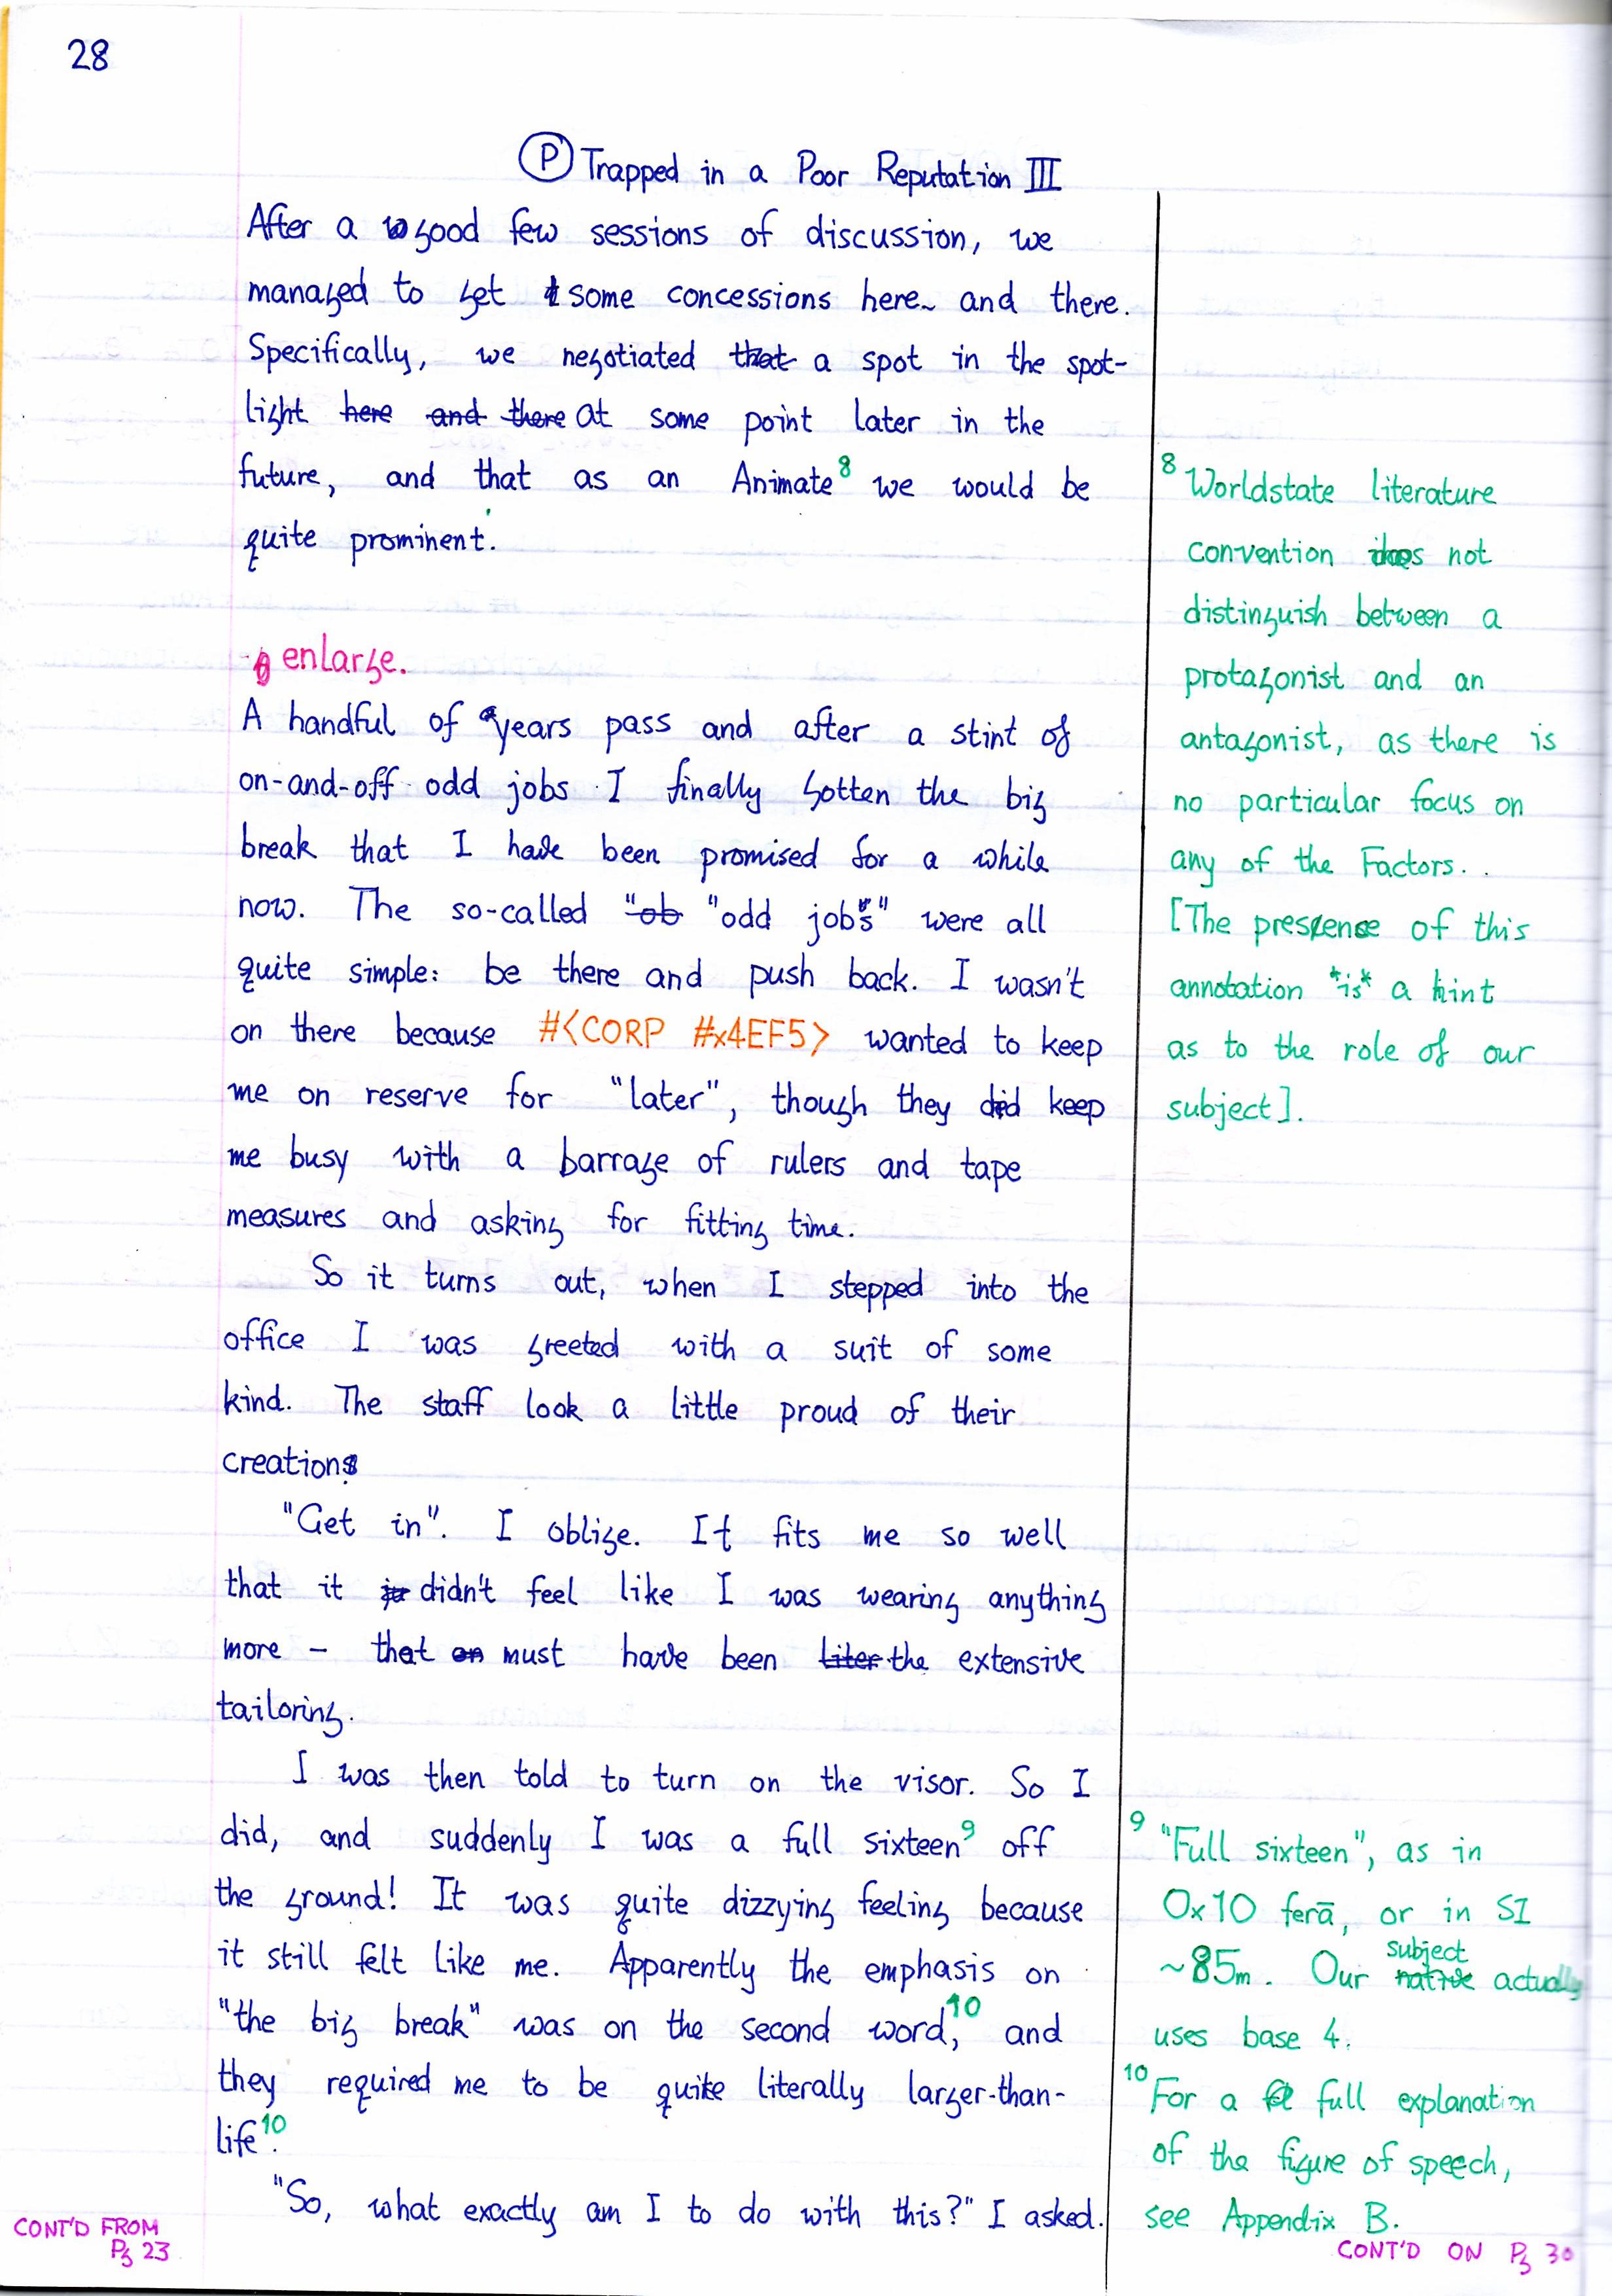 28
Ⓟ Trapped in a Poor Reputation III
After a good few sessions of discussion, we
managed to get some concessions here and there.
Specifically, we negotiated that a spot in the spot-
light here and there at some point later in the
future, and that as an Animate⁸ we would be
quite prominent.
enlarge.
A handful of years pass and after a stint of
on-and-off odd jobs I finally gotten the big
break that I have been promised for a while
now. The so-called "ob "odd jobs" were all
quite simple: be there and push back. I wasn't
on there because #<CORP #x4EF5> wanted to keep
me on reserve for "later", though they did keep
me busy with a barrage of rulers and tape
measures and asking for fitting time.
So it turns out, when I stepped into the
office I was greeted with a suit of some
kind. The staff look a little proud of their
creation
"Get in". I oblige. It fits me so well
that it didn't feel like I was wearing anything
more – that must have been liter the extensive
tailoring.
I was then told to turn on the visor. So I
did, and suddenly I was a full sixteen⁹ off
the ground! It was quite dizzying feeling because
it still felt like me. Apparently the emphasis on
"the big break" was on the second word,¹⁰ and
they required me to be quite literally larger-than-
life¹⁰.
"So, what exactly am I to do with this?" I asked.
⁸ Worldstate literature
convention does not
distinguish between a
protagonist and an
antagonist, as there is
no particular focus on
any of the Factors.
[The presence of this
annotation *is* a hint
as to the role of our
subject].
⁹ "Full sixteen", as in
0x10 ferā, or in SI
~85m. Our native subject actually
uses base 4.
¹⁰ For a full explanation
of the figure of speech,
see Appendix B.
CONT'D FROM
Pg 23
CONT'D ON Pg 30